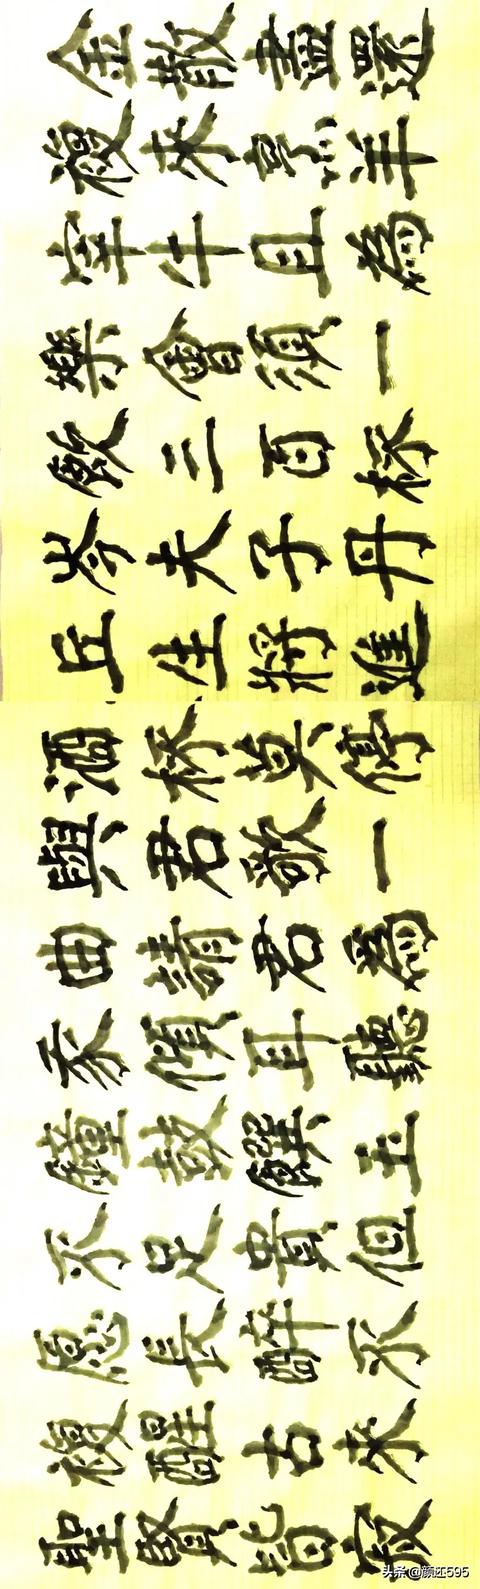 金散盡還
復來烹羊
宰牛且為
樂會須一
飲三百杯
岑夫子丹
丘生將進
酒杯莫停
與君歌一
曲請君為
我傾耳聽
鐘鼓饌玉
不足貴但
愿長醉不
復醒古來
聖賢皆寂
头条 @颜廷595